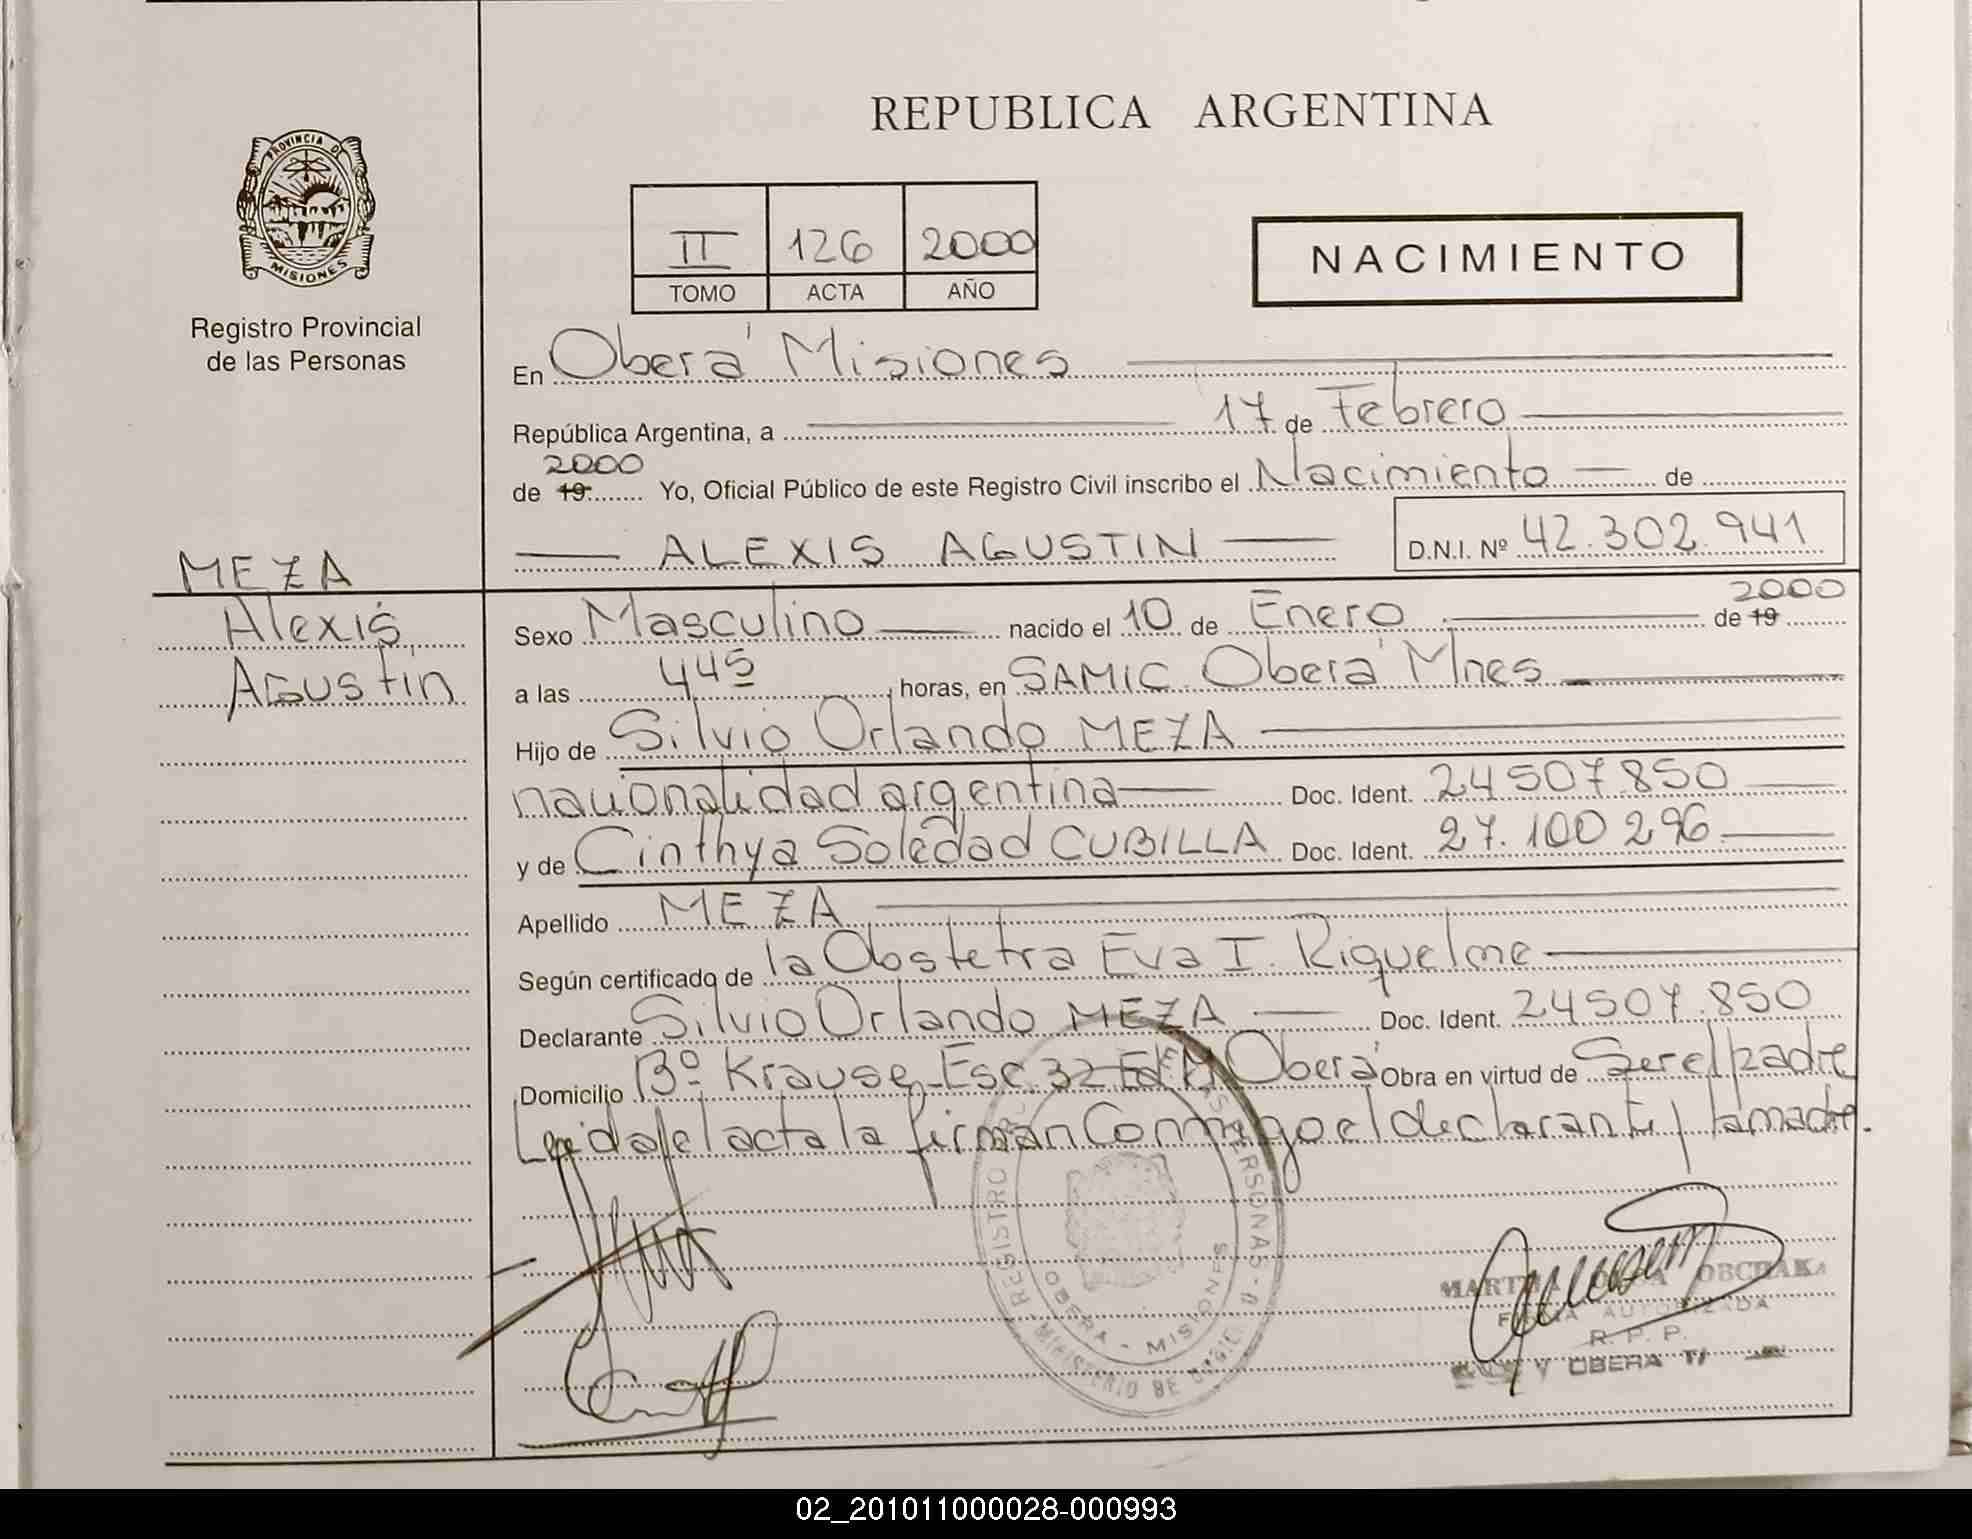 REPUBLICA ARGENTINA
PROVINCIA DE
MISIONES
Registro Provincial
de las Personas
II 126 2000
TOMO ACTA AÑO
NACIMIENTO
En Oberá Misiones
República Argentina, a 17 de Febrero
2000
de 19 Yo, Oficial Público de este Registro Civil inscribo el Nacimiento de
ALEXIS AGUSTIN D.N.I. Nº 42.302.941
MEZA
Alexis
Agustin
2000
Sexo Masculino nacido el 10 de Enero de 19
a las 445 horas, en SAMIC Oberá Mnes
Hijo de Silvio Orlando MEZA
nacionalidad argentina Doc. Ident. 24507.850
y de Cinthya Soledad CUBILLA Doc. Ident. 27.100296
Apellido MEZA
Según certificado de la Obstetra Eva I. Riquelme
Declarante Silvio Orlando MEZA Doc. Ident. 24507.850
Domicilio Bº Krause Esc. 32 Oberá Obra en virtud de Ser el padre
Leida el acta la firman Conmigo el declarante y la madre.
REGISTRO PERSONAS
OBERA - MISIONES
MINISTERIO DE
MARTHA OBCHAKA
FIRMA AUTORIZADA
R. P. P.
OBERA
02_201011000028-000993